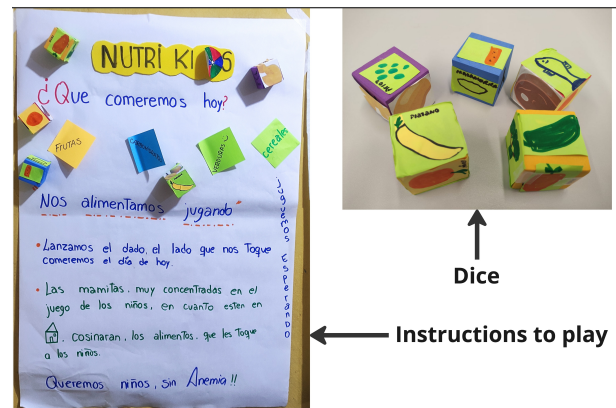 NUTRI KIDS
¿Que comeremos hoy?
FRUTAS
VERDURAS
cereales
Nos alimentamos jugando
juguemos Esperando
• Lanzamos el dado, el lado que nos Toque
comeremos el día de hoy.
• Las mamitas, muy concentradas en el
juego de los niños, en cuanto esten en
, cosinaran, los alimentos, que les Toque
a los niños.
Queremos niños, sin Anemia!!
PLATANO
Dice
Instructions to play